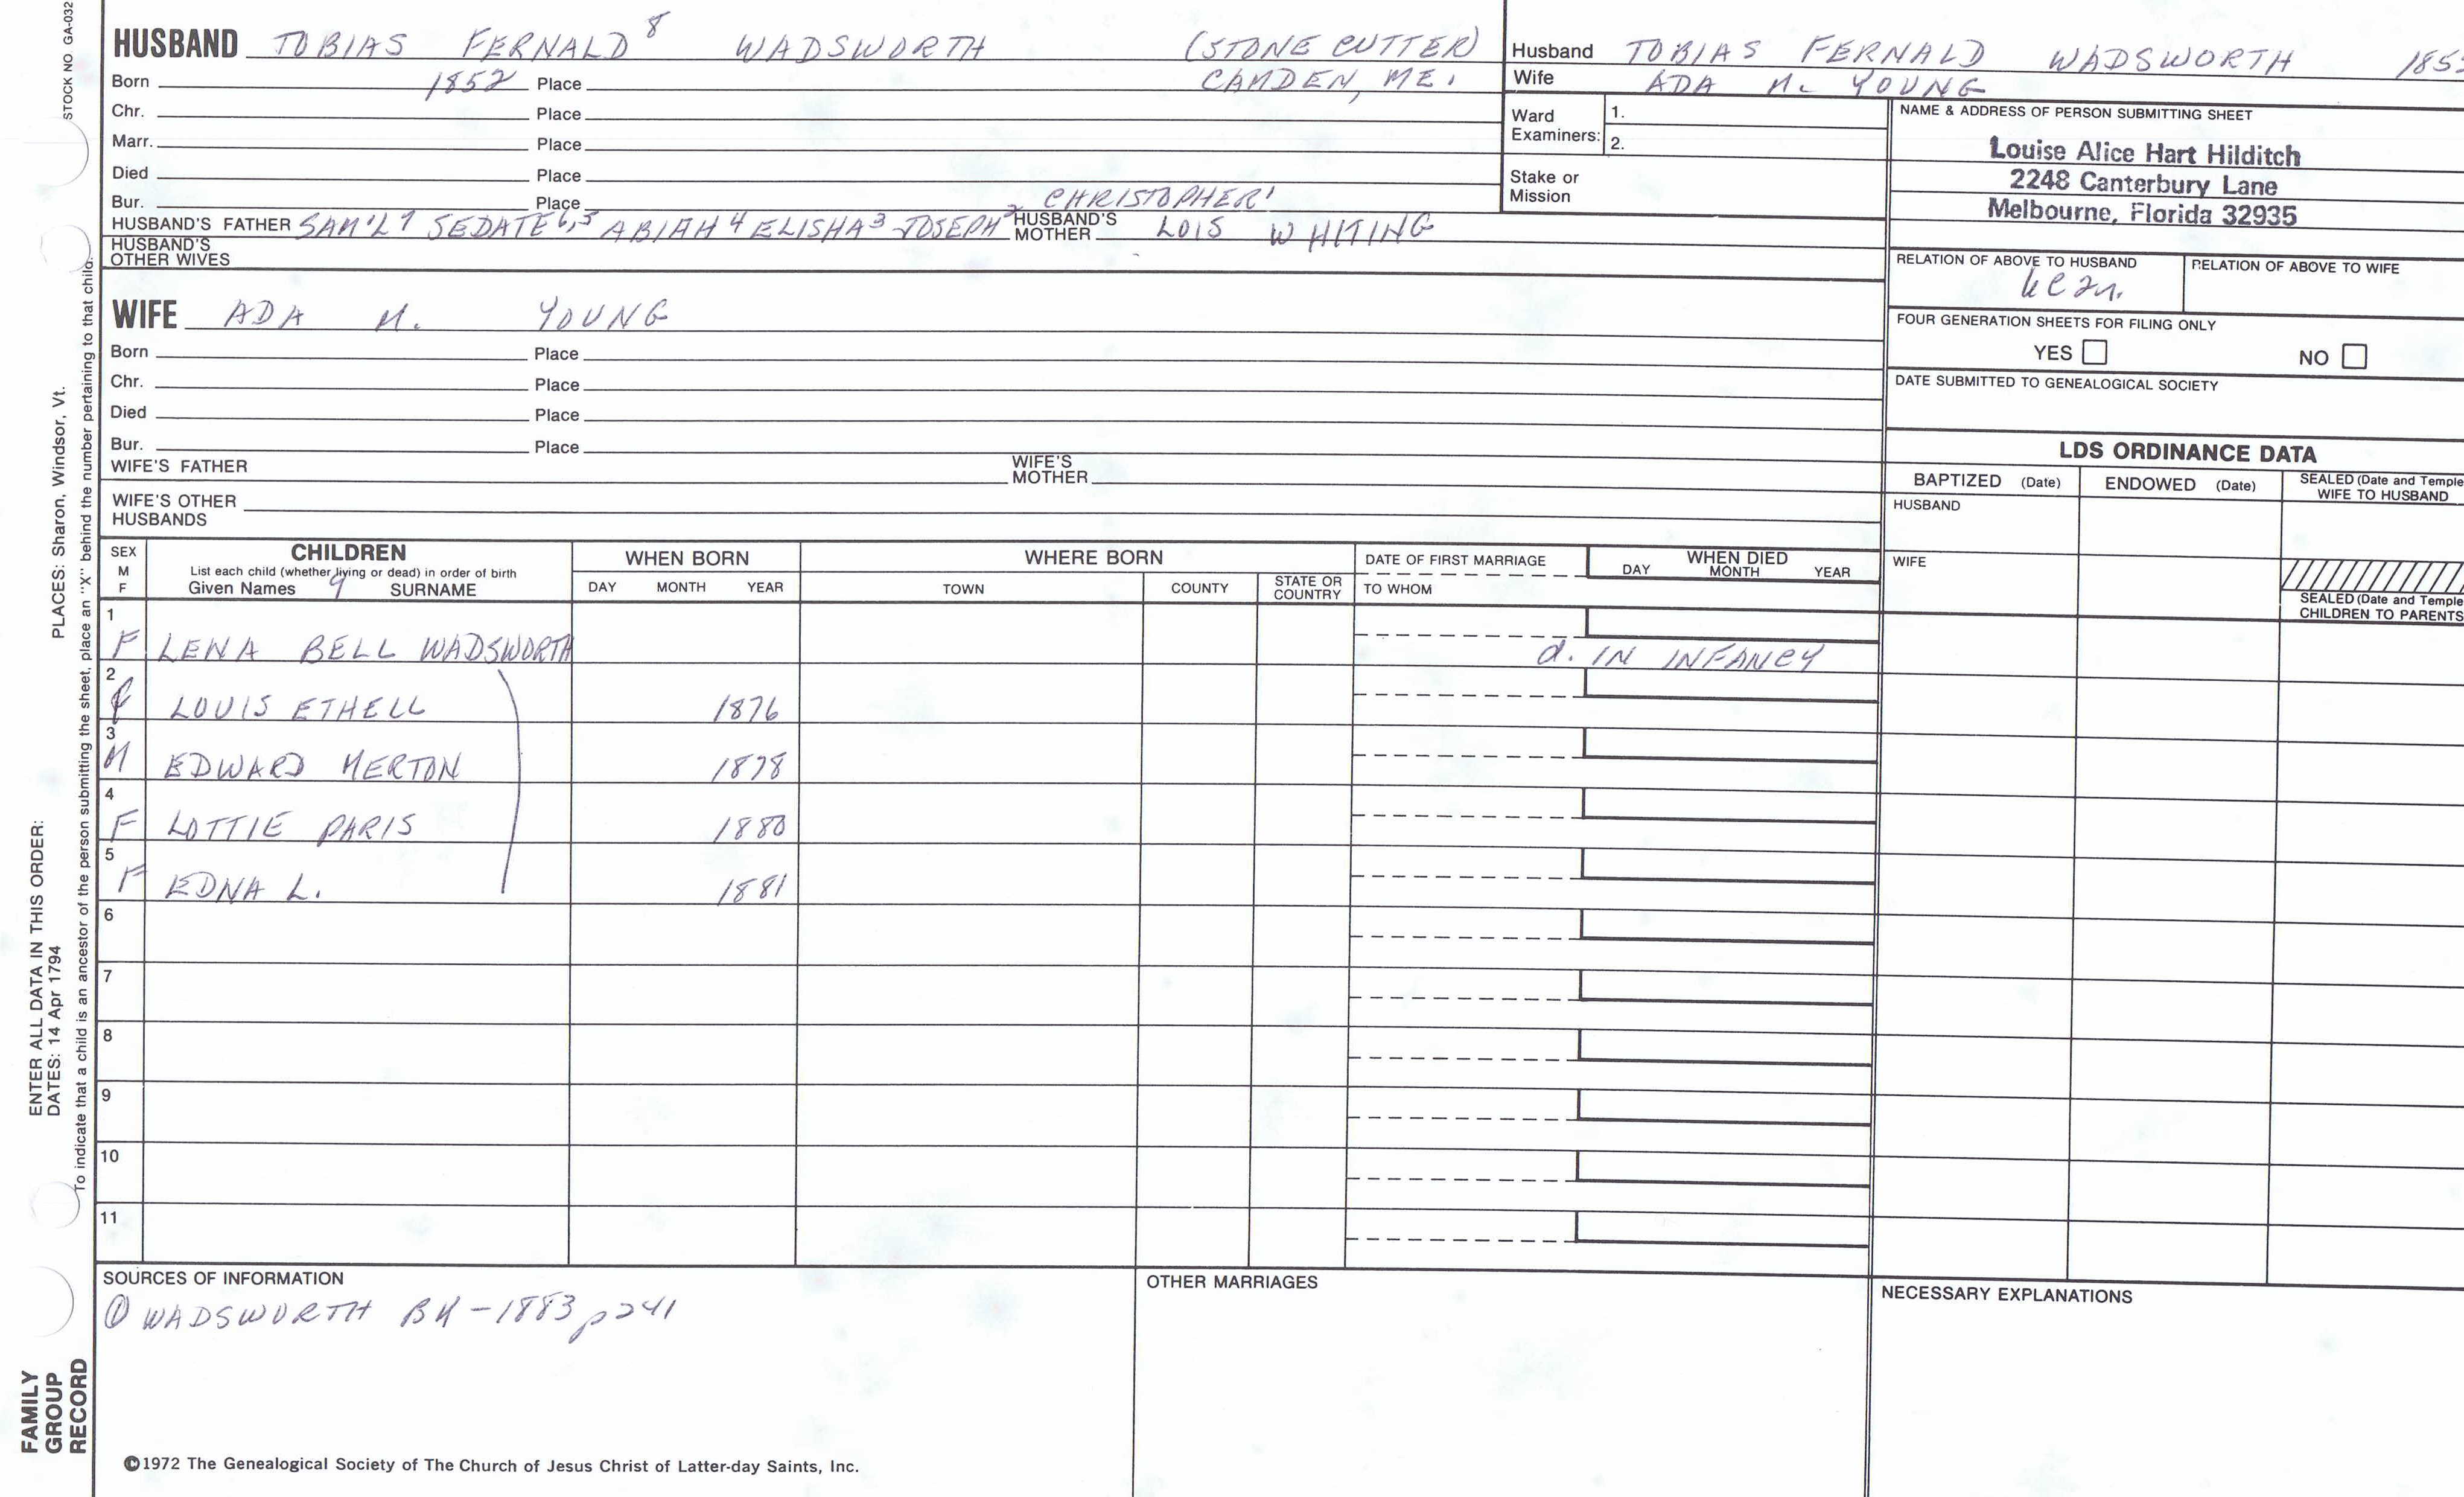 STOCK NO. GA-032
HUSBAND TOBIAS FERNALD 8 WADSWORTH (STONE CUTTER)
Born 1852 Place CAMDEN, ME.
Chr. Place
Marr. Place
Died Place
Bur. Place CHRISTOPHER 1
HUSBAND'S FATHER SAM'L 7 SEDATE 6,5 ABIAH 4 ELISHA 3 JOSEPH 2 HUSBAND'S MOTHER LOIS WHITING
HUSBAND'S OTHER WIVES
WIFE ADA M. YOUNG
Born Place
Chr. Place
Died Place
Bur. Place
WIFE'S FATHER WIFE'S MOTHER
WIFE'S OTHER HUSBANDS
Husband TOBIAS FERNALD WADSWORTH
Wife ADA M. YOUNG
Ward Examiners: 1.
2.
Stake or Mission
NAME & ADDRESS OF PERSON SUBMITTING SHEET
Louise Alice Hart Hilditch
2248 Canterbury Lane
Melbourne, Florida 32935
RELATION OF ABOVE TO HUSBAND RELATION OF ABOVE TO WIFE
FOUR GENERATION SHEETS FOR FILING ONLY
YES NO
DATE SUBMITTED TO GENEALOGICAL SOCIETY
LDS ORDINANCE DATA
BAPTIZED (Date) ENDOWED (Date) SEALED (Date and Temple
WIFE TO HUSBAND
HUSBAND
WIFE
SEALED (Date and Temple
CHILDREN TO PARENTS
SEX M F
CHILDREN
List each child (whether living or dead) in order of birth
Given Names 9 SURNAME
WHEN BORN
DAY MONTH YEAR
WHERE BORN
TOWN COUNTY STATE OR COUNTRY
DATE OF FIRST MARRIAGE
TO WHOM
WHEN DIED
DAY MONTH YEAR
1 F LENA BELL WADSWORTH d. IN INFANCY
2 LOUIS ETHELL 1876
3 M EDWARD MERTON 1878
4 F LOTTIE PARIS 1880
5 F EDNA L. 1881
6
7
8
9
10
11
SOURCES OF INFORMATION
① WADSWORTH BK - 1883 p 241
OTHER MARRIAGES
NECESSARY EXPLANATIONS
©1972 The Genealogical Society of The Church of Jesus Christ of Latter-day Saints, Inc.
FAMILY
GROUP
RECORD
ENTER ALL DATA IN THIS ORDER:
DATES: 14 Apr 1794
PLACES: Sharon, Windsor, Vt.
To indicate that a child is an ancestor of the person submitting the sheet, place an "X" behind the number pertaining to that child.